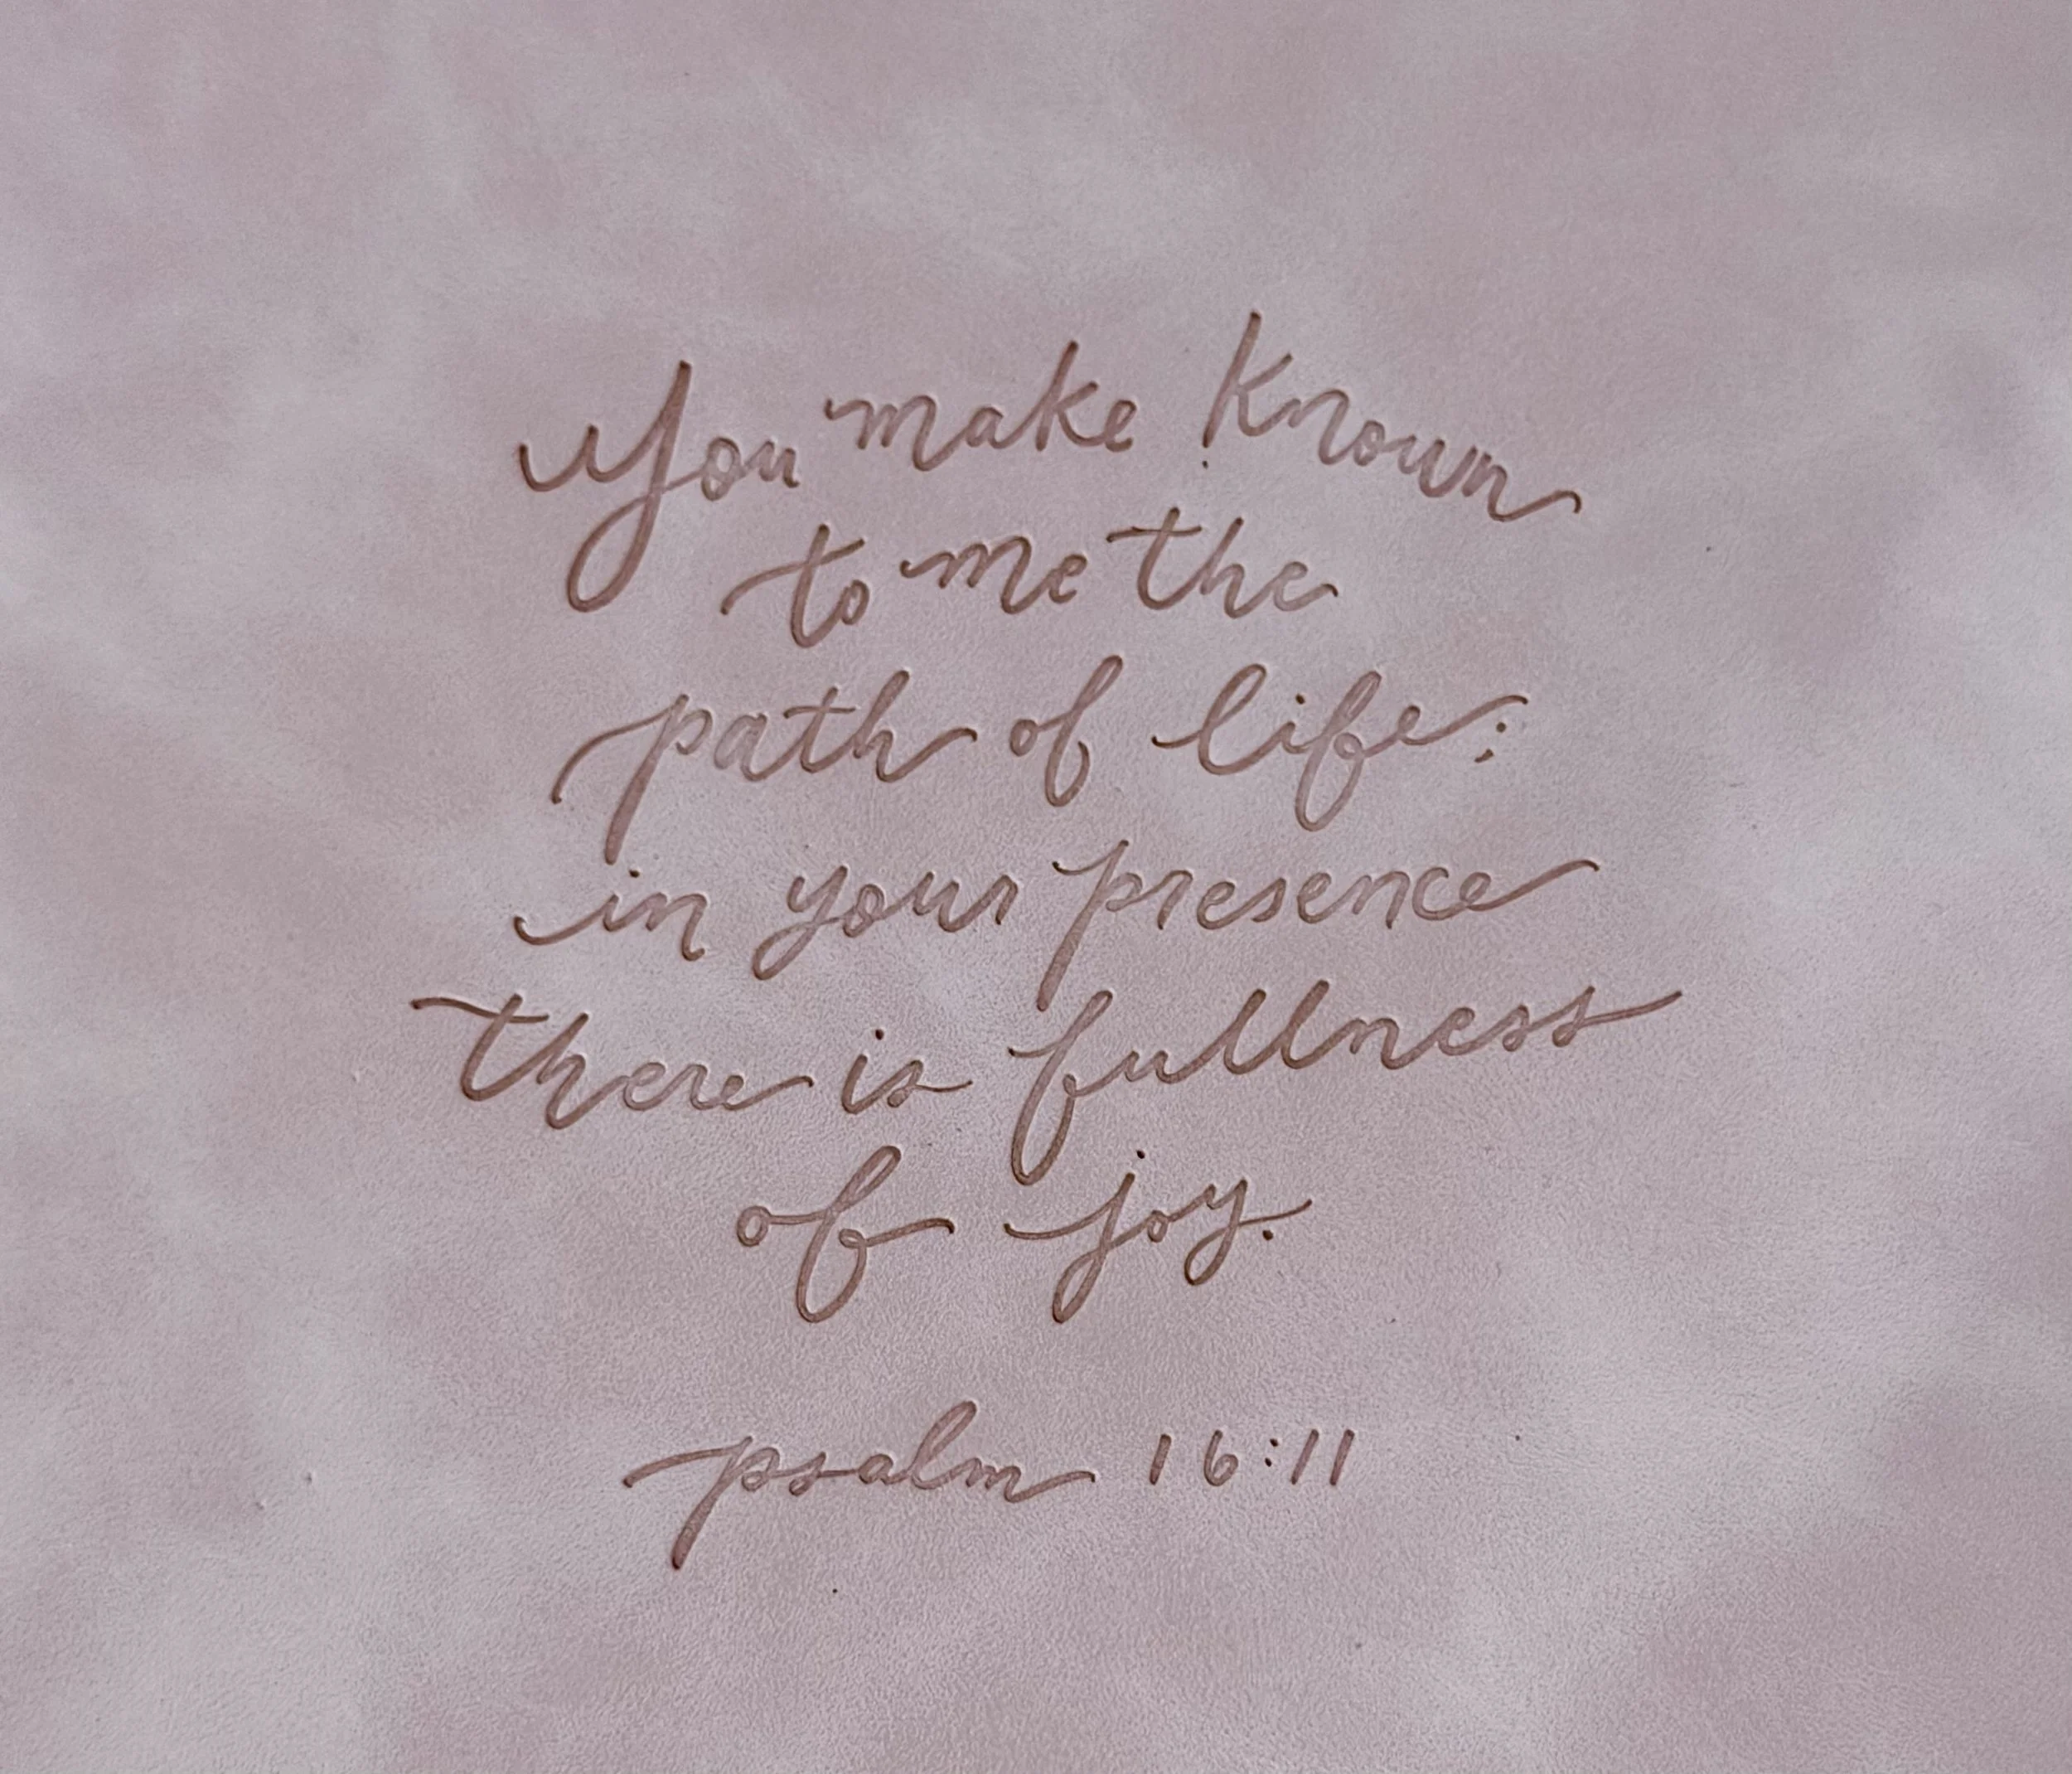 You make known
to me the
path of life;
in your presence
there is fullness
of joy.
psalm 16:11